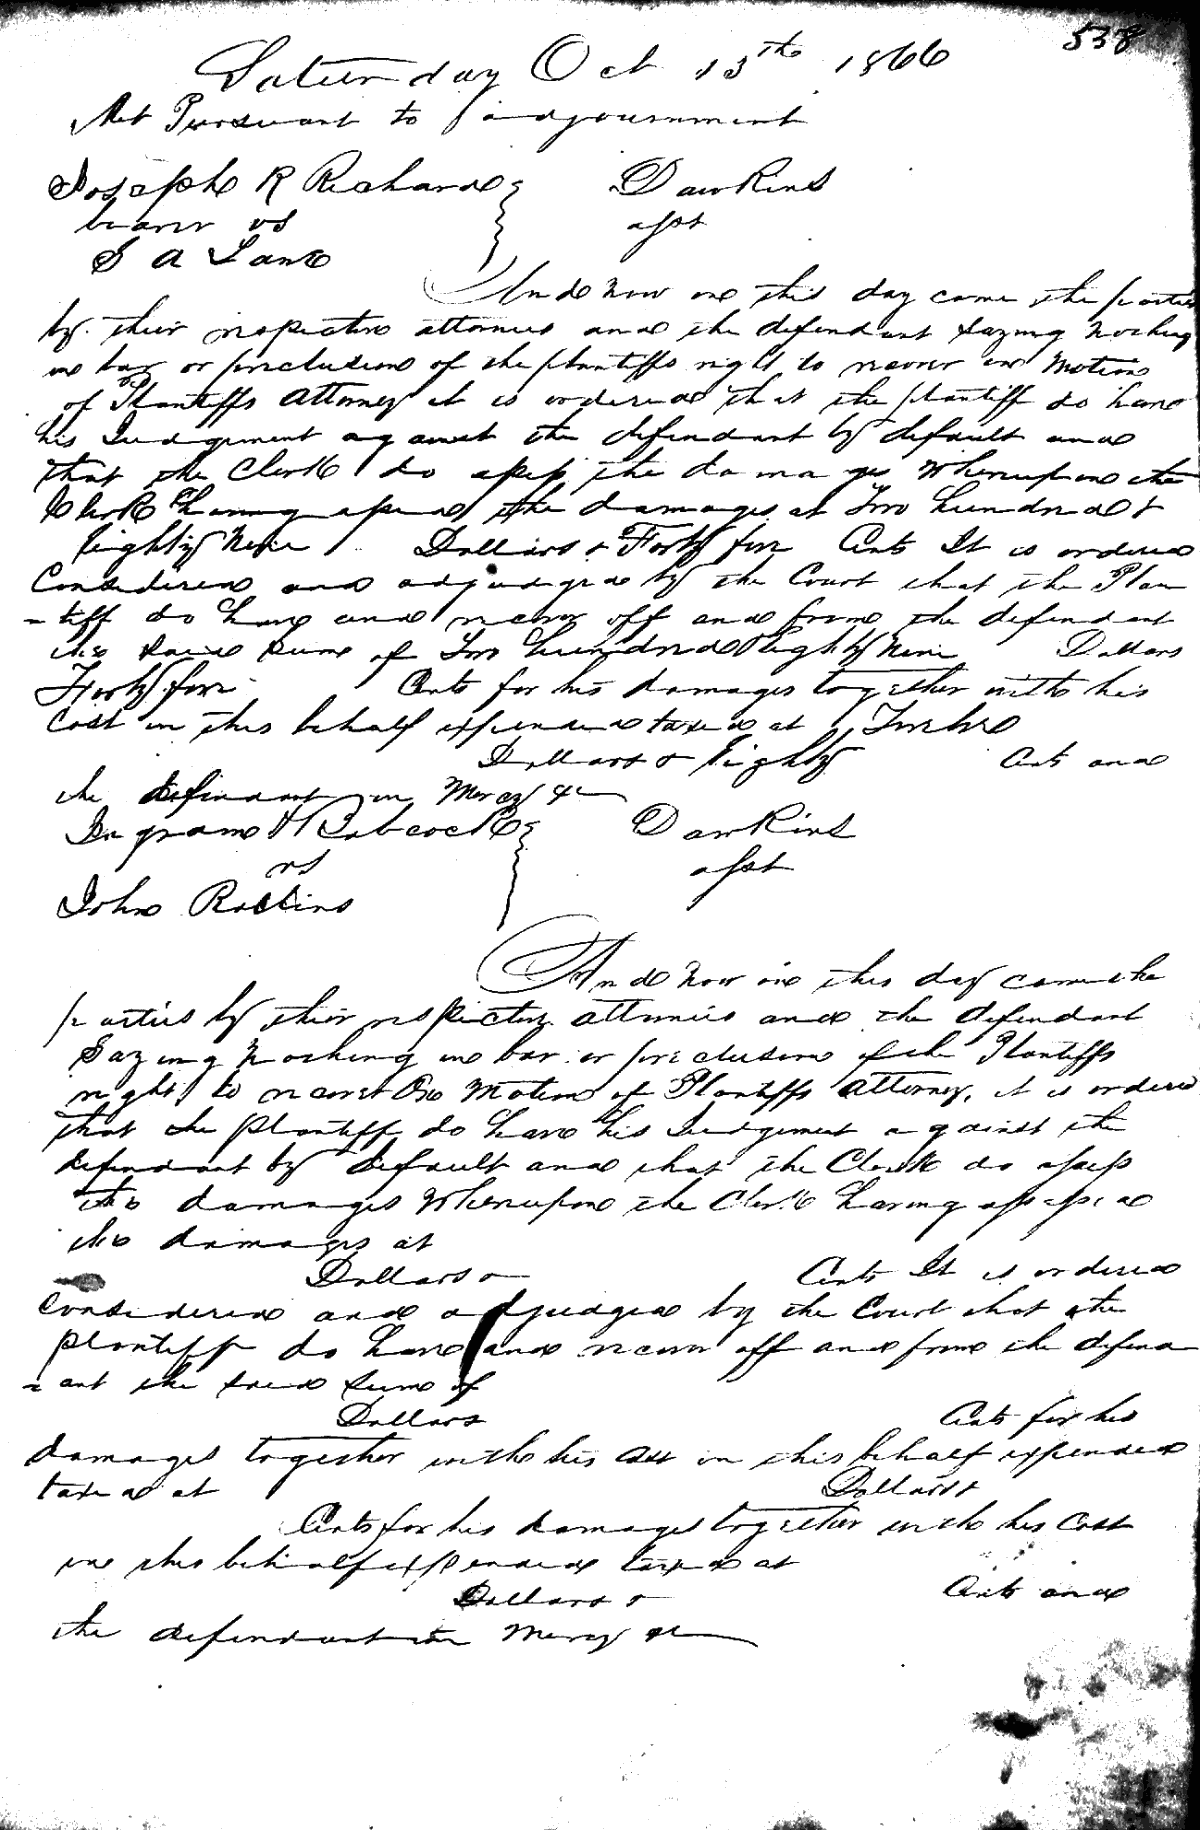 538
Saturday Oct 13th 1866
Met Pursuant to adjournment
Joseph R Richard Dawkins
bearer vs asst
S A Lane
And now on this day came the parties
by their respective attornies and the defendant saying nothing
in bar or preclusion of the plantiffs right to recover on Motion
of Plantiffs Attorney it is ordered that the plantiff do have
his Judgement against the defendant by default and
that the Clerk do assess the damages Whereupon the
Clerk having assessed the damages at Two hundred &
Eighty Nine Dollars & Forty five Cents It is ordered
Considered and adjudged by the Court that the Plan
-tiff do have and recover off and from the defendant
the said sum of Two hundred Eighty Nine Dollars
Forty five Cents for his damages together with his
Cost in this behalf expended taxed at Twelve
Dollars & Eighty Cents and
the defendant in Mercy &c
Ingram & Babcock Dawkins
vs asst
John Rollins
And now on this day came the
parties by their respective attornies and the defendant
Saying nothing in bar or preclusion of the Plantiffs
right to recover On Motion of Plantiffs Attorney, it is ordered
that the plantiff do have his Judgement against the
defendant by default and that the Clerk do assess
the damages Whereupon the Clerk having assessed
the damages at
Dollars & Cents It is ordered
Considered and adjudged by the Court that the
plantiff do have and recover off and from the defend
-ant the said sum of
Dollars Cents for his
damages together with his Cost in this behalf expended
taxed at Dollars &
Cents for his damages together with his Cost
in this behalf expended taxed at
Dollars & Cents and
the defendant in Mercy &c